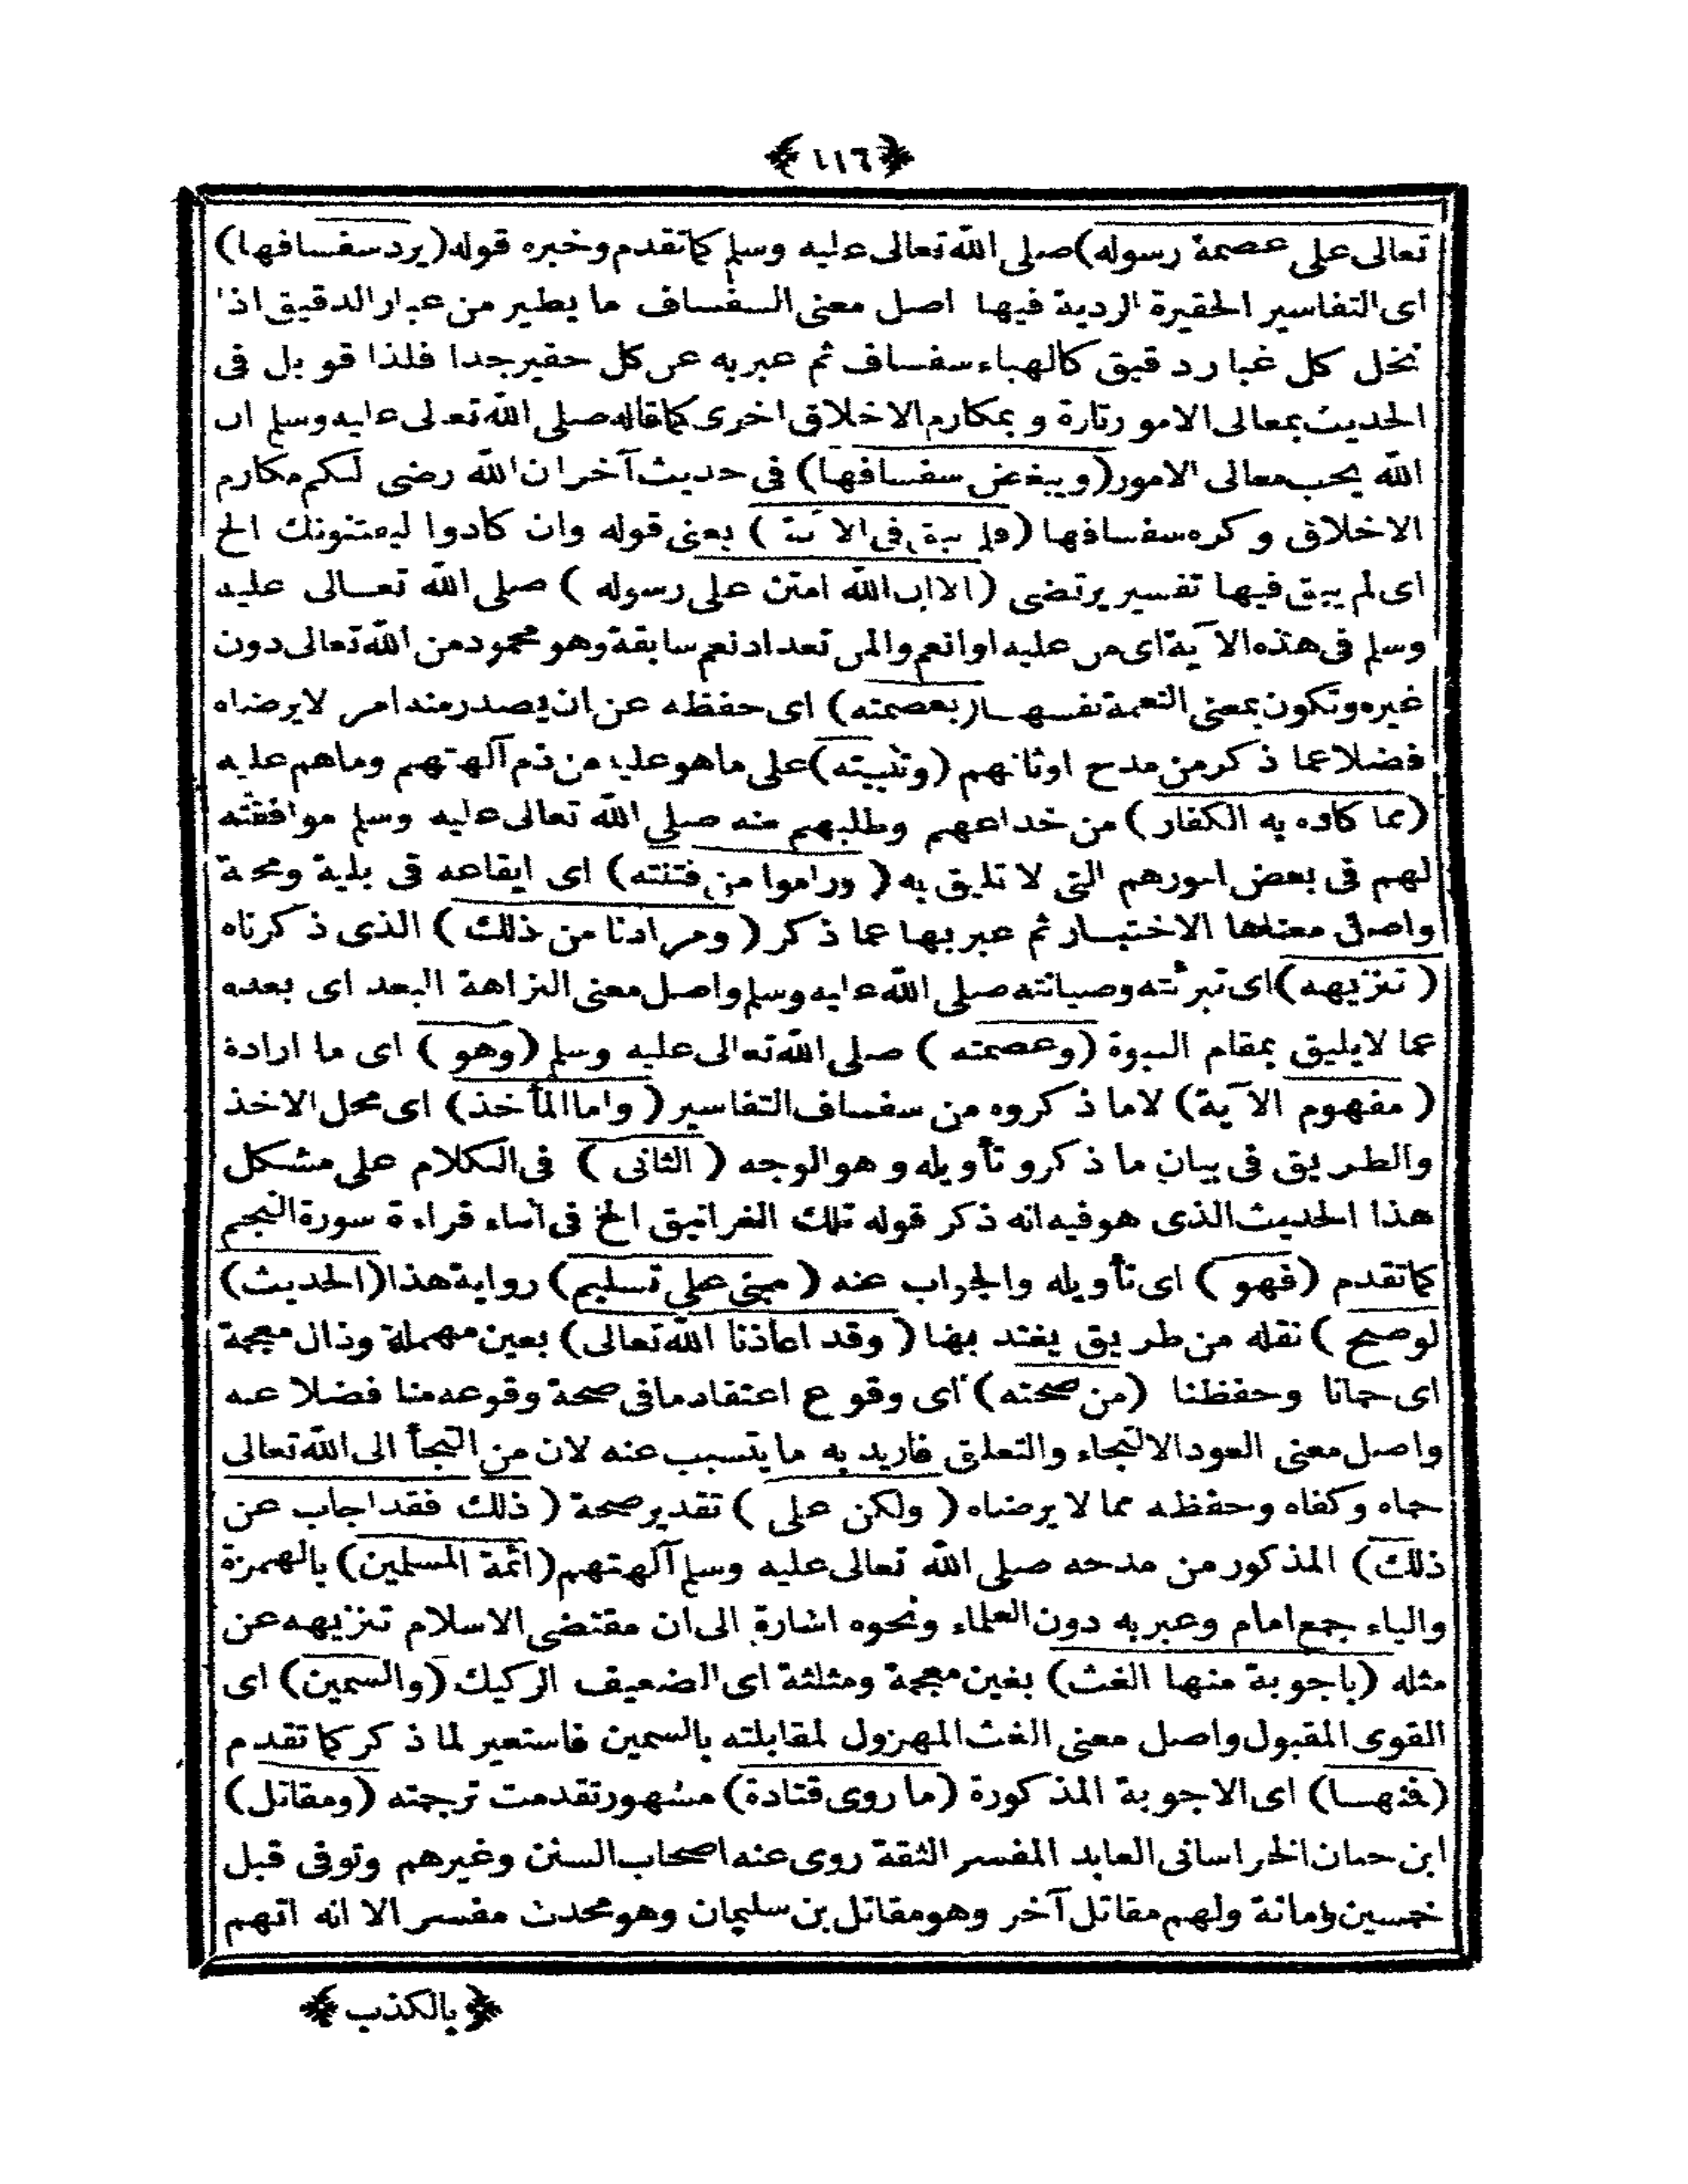 ﴿١١٦﴾
تعالى على عصمة رسوله) صلى الله تعالى عليه وسلم كما تقدم وخبره قوله (يرد سفسافها)
اى التفاسير الحقيرة الردية فيها اصل معنى السفساف ما يطير من غبار الدقيق اذا
نخل كل غبار دقيق كالهباء سفساف ثم عبر به عن كل حقير جدا فلذا قوبل فى
الحديث بمعالى الامور تارة و بمكارم الاخلاق اخرى كما قاله صلى الله تعالى عليه وسلم ان
الله يحب معالى الامور (ويبغض سفسافها) فى حديث آخر ان الله رضى لكم مكارم
الاخلاق وكره سفسافها (فلم يبق فى الآية) يعنى قوله وان كادوا ليفتنونك الخ
اى لم يبق فيها تفسير يرتضى (الا ان الله امتن على رسوله) صلى الله تعالى عليه
وسلم فى هذه الآية اى من عليه او انعم والمن تعداد نعم سابقة وهو محمود من الله تعالى دون
غيره وتكون بمعنى النعمة نفسها (بعصمته) اى حفظه عن ان يصدر منه امر لا يرضاه
فضلا عما ذكر من مدح اوثانهم (وتثبيته) على ما هو عليه من ذم آلهتهم وما هم عليه
(مما كاده به الكفار) من خداعهم وطلبهم منه صلى الله تعالى عليه وسلم موافقته
لهم فى بعض امورهم التى لا تليق به (وراموا من فتنته) اى ايقاعه فى بلية ومحنة
واصل معناها الاختبار ثم عبر بها عما ذكر (ومرادنا من ذلك) الذى ذكرناه
(تنزيهه) اى تبرئته وصيانته صلى الله عليه وسلم واصل معنى النزاهة البعد اى بعده
عما لا يليق بمقام النبوة (وعصمته) صلى الله تعالى عليه وسلم (وهو) اى ما اراده
(مفهوم الآية) لا ما ذكروه من سفساف التفاسير (واما المأخذ) اى محل الاخذ
والطريق فى بيان ما ذكرو تأويله وهو الوجه (الثانى) فى الكلام على مشكل
هذا الحديث الذى هو فيه انه ذكر قوله تلك الغرانيق الخ فى اثناء قراءة سورة النجم
كما تقدم (فهو) اى تأويله والجواب عنه (مبنى على تسليم) رواية هذا (الحديث)
لو صح) نقله من طريق يعتد بها (وقد اعاذنا الله تعالى) بعين مهملة وذال معجمة
اى حمانا وحفظنا (من صحته) اى وقوع اعتقاد ما فى صحة وقوعه منا فضلا عنه
واصل معنى العود الالتجاء والتعلق فاريد به ما يتسبب عنه لان من التجأ الى الله تعالى
حماه وكفاه وحفظه مما لا يرضاه (ولكن على) تقدير صحة (ذلك فقد اجاب عن
ذلك) المذكور من مدحه صلى الله تعالى عليه وسلم آلهتهم (ائمة المسلمين) بالهمزة
والياء جمع امام وعبر به دون العلماء ونحوه اشارة الى ان مقتضى الاسلام تنزيهه عن
مثله (باجوبة منها الغث) بغين معجمة ومثلثة اى الضعيف الركيك (والسمين) اى
القوى المقبول واصل معنى الغث المهزول لمقابلته بالسمين فاستعير لما ذكر كما تقدم
(فمنها) اى الاجوبة المذكورة (ما روى قتادة) مشهور تقدمت ترجمته (ومقاتل)
ابن حيان الخراسانى العابد المفسر الثقة روى عنه اصحاب السنن وغيرهم وتوفى قبل
خمسين ومائة ولهم مقاتل آخر وهو مقاتل بن سليمان وهو محدث مفسر الا انه اتهم
﴿بالكذب﴾